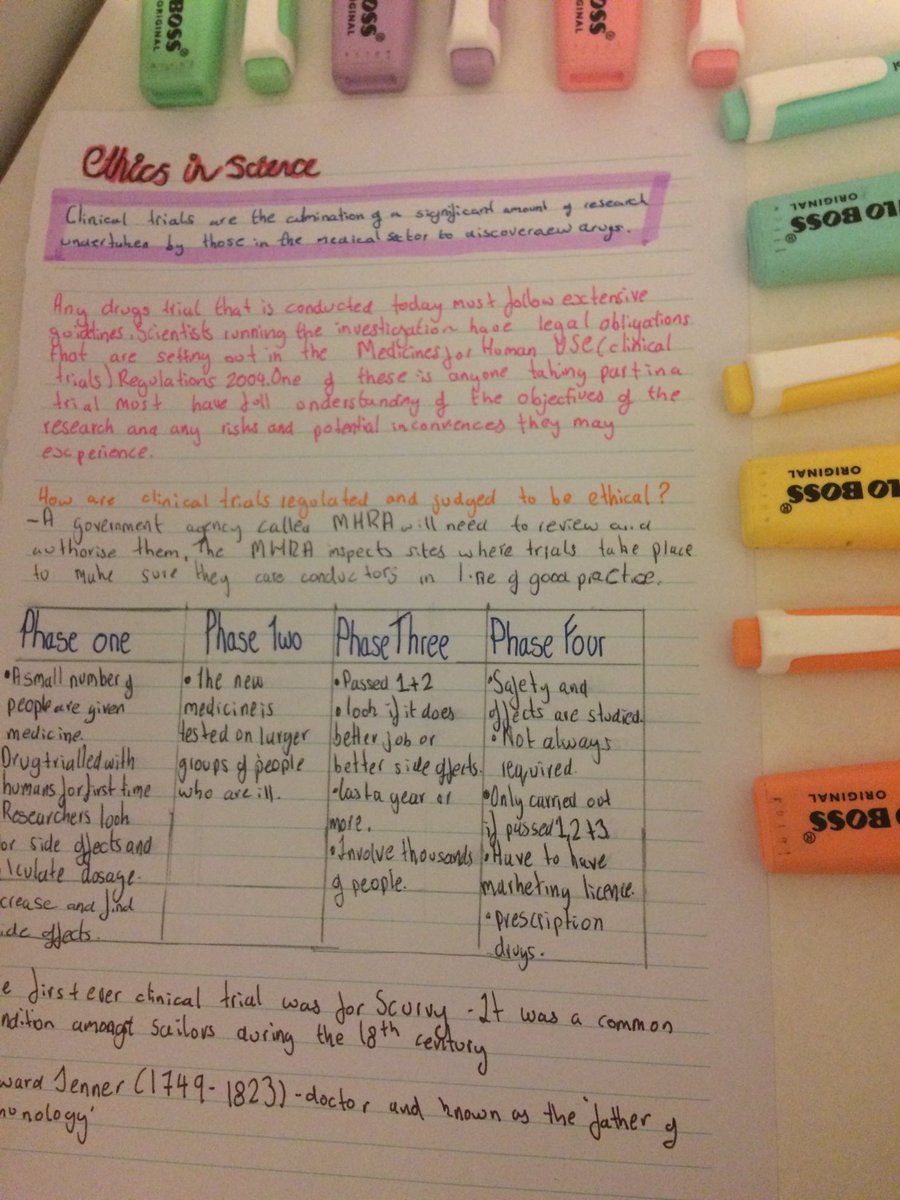 BOSS
ORIGINAL
BOSS
ORIGINAL
BOSS
ethics in science
Clinical trials are the culmination of a significant amount of research
undertaken by those in the medical sector to discover new drugs.
LO BOSS
ORIGINAL
Any drugs trial that is conducted today most follow extensive
guidlines. Scientists running the investigation have legal obligations
that are setting out in the Medicines for Human USE (clinical
trials) Regulations 2004. One of these is anyone taking part in a
trial most have full understanding of the objectives of the
research and any risks and potential inconvences they may
excperience.
LO BOSS
ORIGINAL
How are clinical trials regulated and judged to be ethical?
-A government agency called MHRA will need to review and
authorise them. The MHRA inspects sites where trials take place
to make sure they are conductors in line of good practice.
Phase one
•A small number of
people are given
medicine.
Drug trialled with
humans for first time
Researchers look
or side effects and
lculate dosage.
crease and find
ide effects.
Phase Two
•The new
medicine is
tested on larger
groups of people
who are ill.
Phase Three
•Passed 1+2
•look if it does
better job or
better side effects.
•last a year or
more.
•Involve thousands
of people.
Phase Four
•Safety and
effects are studied.
•Not always
required.
•Only carried out
if passed 1,2+3
•Have to have
marketing licence.
•prescription
drugs.
LO BOSS
ORIGINAL
e first ever clinical trial was for Scurvy - It was a common
ndition amongst sailors during the 18th century
ward Jenner (1749-1823) - doctor and known as the 'father of
munology'